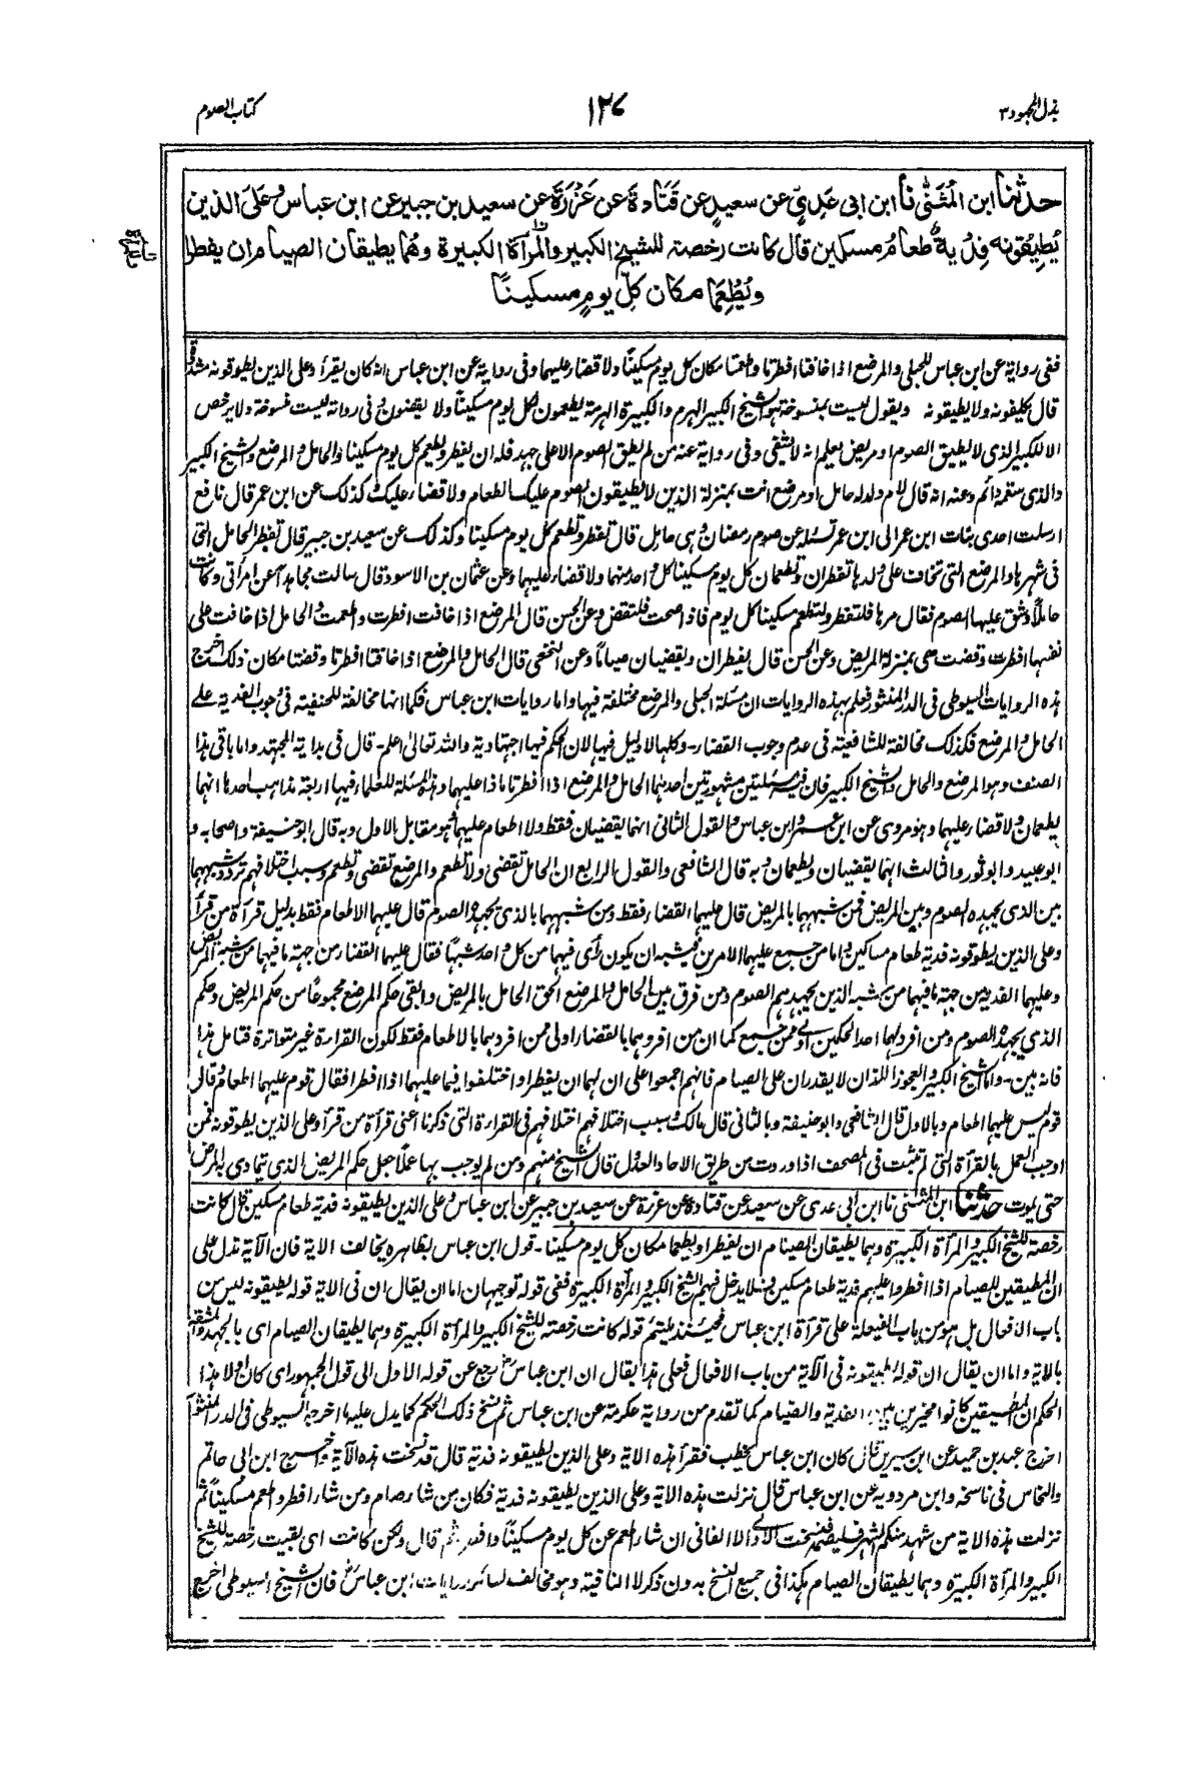 بذل المجهود ٣
١٣٧
كتاب الصوم
حدثنا ابن المُثَنّٰى نا ابن ابى عَدِىّ عن سعيدٍ عن قَتَادةَ عن عَزْرَةَ عن سعيد بن جبير عن ابن عباس وعَلَى الذين
يُطِيُقونه فِدْيةٌ طعامُ مسكين قال كانت رخصة للشيخ الكبير والمرأة الكبيرة وهُما يطيقان الصيام ان يفطرا
ويُطْعِمَا مكان كلّ يومٍ مسكينًا
ففى رواية عن ابن عباس للحبلى والمرضع اذا خافتا افطرتا واطعمتا مكان كل يوم مسكيناً ولا قضاء عليهما وفى رواية عن ابن عباس انه كان يقرأ وعلى الذين يطوقونه مشددة
قال يكلفونه ولا يطيقونه ويقول ليست بمنسوخة هو الشيخ الكبير الهرم والكبيرة الهرمة يطعمون لكل يوم مسكيناً ولا يقضون وفى رواية ليست منسوخة ولا يرخص
الا للكبير الذى لا يطيق الصوم او مريض يعلم انه لا يشفى وفى رواية عنه من لم يطق الصوم الا على جهد فله ان يفطر ويطعم كل يوم مسكينا والحامل والمرضع والشيخ الكبير
والذى سقمه دائم وعنه انه قال لام ولد له حامل او مرضع انت بمنزلة الذين لا يطيقون الصوم عليك الطعام ولا قضاء عليك وكذلك عن ابن عمر قال نافع
ارسلت احدى بنات ابن عمر الى ابن عمر تسئله عن صوم رمضان وهى حامل قال تفطر وتطعم كل يوم مسكينا وكذلك عن سعيد بن جبير قال تفطر الحامل التى
فى شهرها والمرضع التى تخاف على ولدها تفطران وتطعمان كل يوم مسكينا كل واحد منهما ولا قضاء عليهما وعن عثمان بن الاسود قال سالت مجاهداً عن امرأتى وكانت
حاملاً وشق عليها الصوم فقال مرها فلتفطر ولتطعم مسكينا كل يوم فاذا صحت فلتقض وعن الحسن قال المرضع اذا خافت افطرت واطعمت والحامل اذا خافت على
نفسها افطرت وقضت هى بمنزلة المريض وعن الحسن قال يفطران ويقضيان صياماً وعن النخعى قال الحامل والمرضع اذا خافتا افطرتا وقضتا مكان ذلك اخرج
هذه الروايات السيوطى فى الدر المنثور فعلم بهذه الروايات ان مسئلة الحبلى والمرضع مختلفة فيها واما روايات ابن عباس فكما انها مخالفة للحنفية فى وجوب الفدية على
الحامل والمرضع فكذلك مخالفة للشافعية فى عدم وجوب القضاء - وكلها لا دليل فيها لان الحكم فيها اجتهادية والله تعالى اعلم - قال فى بداية المجتهد واما باقى هذا
الصنف وهو المرضع والحامل والشيخ الكبير فان فيه مسئلتين مشهورتين احدهما الحامل والمرضع اذا افطرتا ماذا عليهما وهذه المسئلة للعلماء فيها اربعة مذاهب احدها انهما
يطعمان ولا قضاء عليهما وهو مروى عن ابن عمر وابن عباس والقول الثانى انهما يقضيان فقط ولا اطعام عليهما وهو مقابل الاول وبه قال ابو حنيفة واصحابه و
ابو عبيد وابو ثور والثالث انهما يقضيان ويطعمان وبه قال الشافعى والقول الرابع ان الحامل تقضى ولا تطعم والمرضع تقضى وتطعم وسبب اختلافهم تردد شبههما
بين الذى يجهده الصوم وبين المريض فمن شبههما بالمريض قال عليهما القضاء فقط ومن شبههما بالذى يجهده الصوم قال عليهما الاطعام فقط بدليل قرأة من قرأ
وعلى الذين يطوقونه فدية طعام مساكين واما من جمع عليهما الامرين فيشبه ان يكون رأى فيهما من كل واحد شبهاً فقال عليهما القضاء من جهة ما فيهما من شبه المريض
وعليهما الفدية من جهة ما فيهما من شبه الذين يجهدهم الصوم ومن فرق بين الحامل والمرضع الحق الحامل بالمريض وابقى حكم المرضع مجموعاً من حكم المريض وحكم
الذى يجهده الصوم ومن افرد لهما احد الحكمين اولى ممن جمع كما ان من افردهما بالقضاء اولى ممن افردهما بالاطعام فقط لكون القراءة غير متواترة فتامل هذا
فانه بين - واما الشيخ الكبير والعجوز اللذان لا يقدران على الصيام فانهم اجمعوا على ان لهما ان يفطرا واختلفوا فيما عليهما اذا افطرا فقال قوم عليهما اطعام وقال
قوم ليس عليهما اطعام وبالاول قال الشافعى وابو حنيفة وبالثانى قال مالك وسبب اختلافهم اختلافهم فى القراءة التى ذكرنا اعنى قرأة من قرأ وعلى الذين يطوقونه فمن
اوجب العمل بالقرأة التى لم تثبت فى المصحف اذا وردت من طريق الاحاد العدول قال الشيخ منهم ومن لم يوجب بها عملا جعل حكم المريض الذى يتمادى به المرض
حتى يموت حدثنا ابن المثنى نا ابن ابى عدى عن سعيد عن قتادة عن عزرة عن سعيد بن جبير عن ابن عباس وعلى الذين يطيقونه فدية طعام مسكين قال كانت
رخصة للشيخ الكبير والمرأة الكبيرة وهما يطيقان الصيام ان يفطرا ويطعما مكان كل يوم مسكينا - قول ابن عباس بظاهره يخالف الاية فان الآية تدل على
ان المطيقين للصيام اذا افطروا عليهم فدية طعام مسكين فلا يدخل فيهم الشيخ الكبير والمرأة الكبيرة ففى قوله توجيهان اما ان يقال ان فى الاية قوله يطيقونه ليس من
باب الافعال بل هو من باب الفيعلة على قرأة ابن عباس فحينئذ يلتئم قوله كانت رخصة للشيخ الكبير والمرأة الكبيرة وهما يطيقان الصيام اى بالجهد والمشقة
بالاية واما ان يقال ان قوله يطيقونه فى الآية من باب الافعال فعلى هذا يقال ان ابن عباس رضـ رجع عن قوله الاول الى قول الجمهور اى كان اولا هذا
الحكم ان المطيقين كانوا مخيرين بين الفدية والصيام كما تقدم من رواية عكرمة عن ابن عباس ثم نسخ ذلك الحكم كما يدل عليه ما اخرجه السيوطى فى الدر المنثور
اخرج عبد بن حميد عن ابن سيرين قال كان ابن عباس يخطب فقرأ هذه الاية وعلى الذين يطيقونه فدية قال قد نسخت هذه الآية واخرج ابن ابى حاتم
والنحاس فى ناسخه وابن مردويه عن ابن عباس قال نزلت هذه الاية وعلى الذين يطيقونه فدية فكان من شاء صام ومن شاء افطر واطعم مسكيناً ثم
نزلت هذه الاية من شهد منكم الشهر فليصمه فنسخت الاولى الا الفانى ان شاء اطعم عن كل يوم مسكيناً وافطر ثم قال ولكن كانت اى بقيت رخصة للشيخ
الكبير والمرأة الكبيرة وهما يطيقان الصيام هكذا فى جميع النسخ بدون ذكر لا النافية وهو مخالف لسائر روايات ابن عباس رضـ فان الشيخ السيوطى اخرج